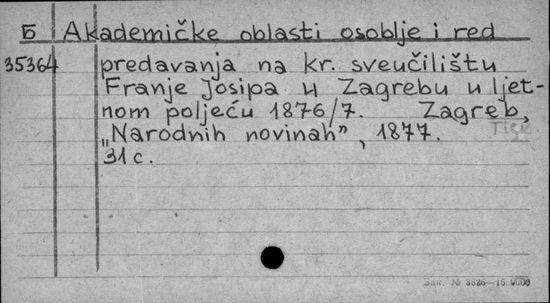 Б Akademičke oblasti osoblje i red
35364 predavanja na kr. sveučilištu
Franje Josipa u Zagrebu u ljet-
nom poljeću 1876/7. Zagreb,
Tisk.
„Narodnih novinah”, 1877.
31 c.
Зак. № 8826—15.000